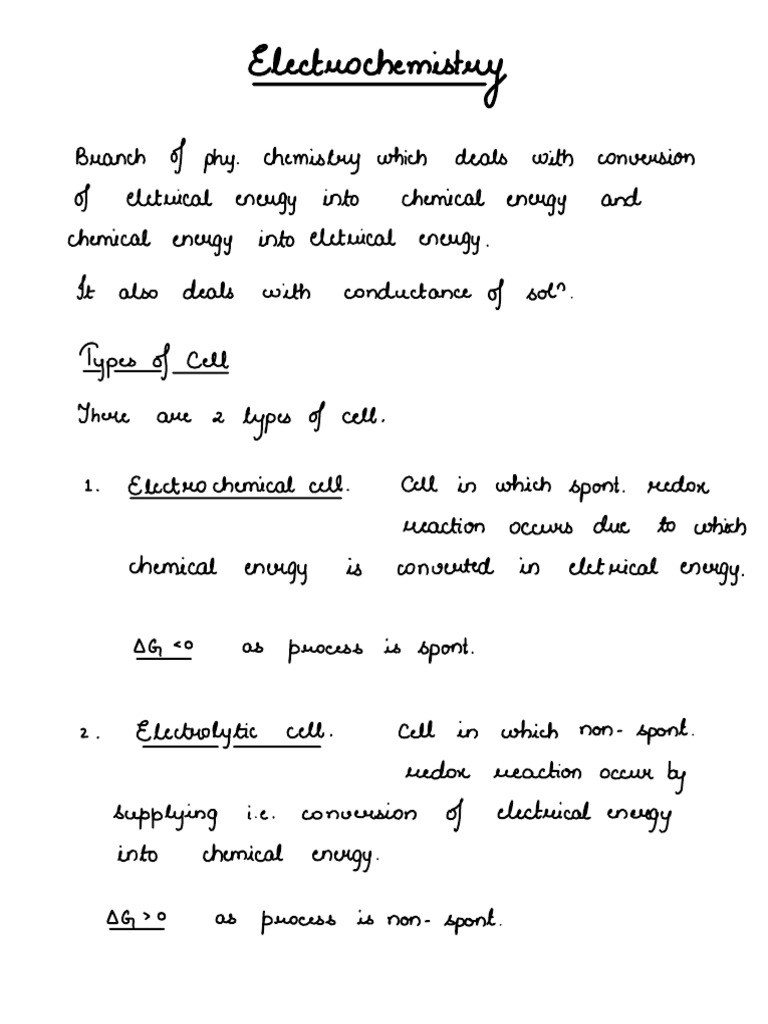 Electrochemistry
Branch of phy. chemistry which deals with conversion
of eletrical energy into chemical energy and
chemical energy into eletrical energy.
It also deals with conductance of solⁿ.
Types of Cell
There are 2 types of cell.
1. Electrochemical cell. Cell in which spont. redox
reaction occurs due to which
chemical energy is converted in eletrical energy.
ΔG <0 as process is spont.
2. Electrolytic cell. Cell in which non-spont.
redox reaction occur by
supplying i.e. conversion of electrical energy
into chemical energy.
ΔG >0 as process is non-spont.